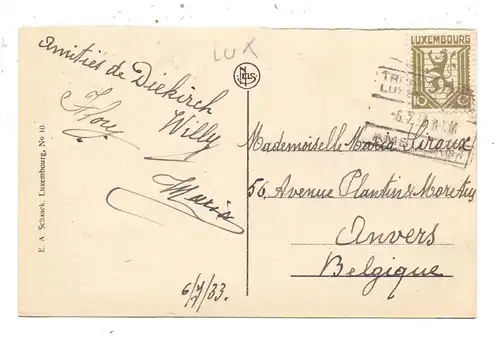 Amitiés de Diekirch
Willy
Maria
6/7/33.
LUX
E. A. Schaack, Luxembourg, No 10
NELS
LUXEMBOURG
10 C
6.7.
Mademoiselle Maria Giroux
56, Avenue Plantin & Moretus
Anvers
Belgique